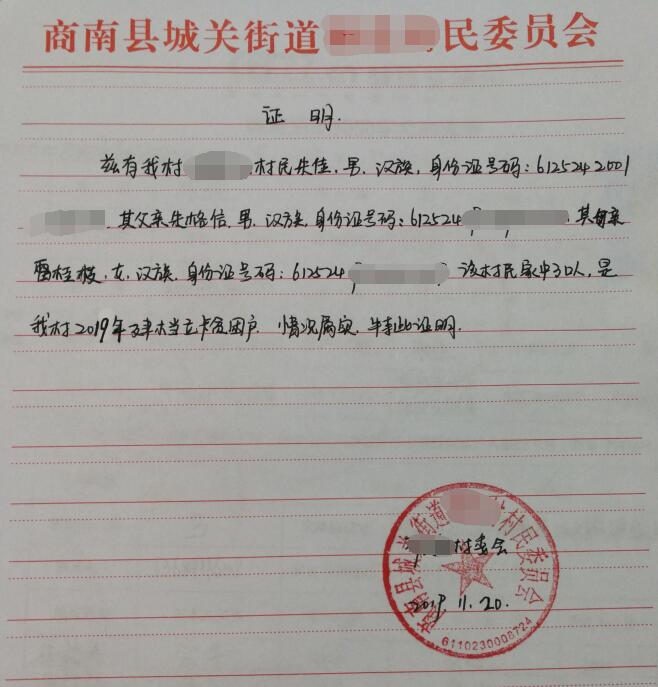 商南县城关街道民委员会
证 明.
兹有我村村民失佳,男,汉族,身份证号码:612524 2001
其父亲失格信,男,汉族,身份证号码:612524,其母亲
雷桂枝,女,汉族,身份证号码:612524 该村民家中3口人,是
我村2019年建档立卡贫困户.情况属实,特此证明.
商南县城关街道村民委员会
村委会
2019.11.20.
6110230008724